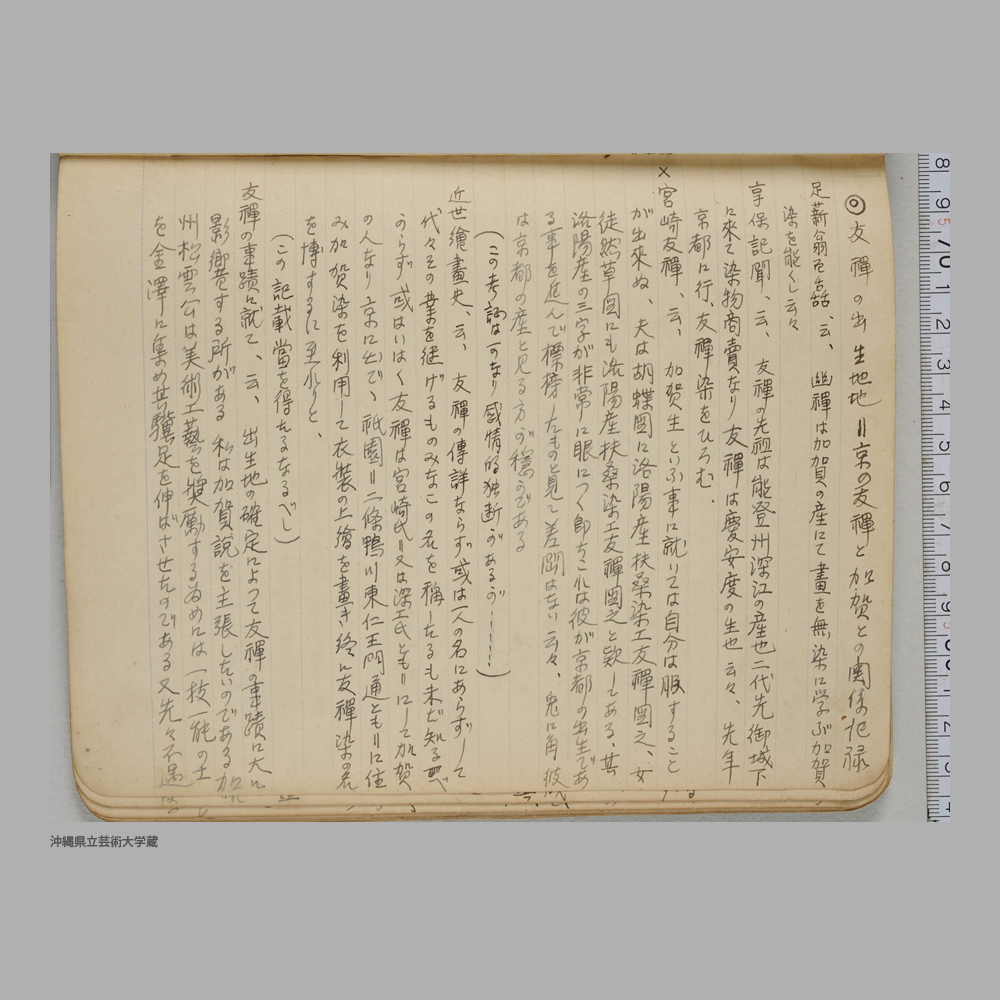 ◎友禪の出生地地〃京の友禪と加賀との関係記録
足薪翁 云、幽禪は加賀の産にて畫を無染に学ぶ加賀
染を能くし云々
享保記聞、云、友禪の先祖は能登州深江の産也二代先御城下
に來て染物商賣なり友禪は慶安度の生也云々、先年
京都に行、友禪染をひろむ、
×宮崎友禪、云、加賀生といふ事に就いては自分は服すること
が出來ぬ、夫は胡蝶図に洛陽産扶桑染工友禪図之、女
徒然草図にも洛陽産扶桑染工友禪図之と款してある、其
洛陽産の三字が非常に眼につく即ちこれは彼が京都の出生であ
る事を進んで標榜したものと見て差間はない云々、兎に角彼
は京都の産と見る方が穏うである
(この考証は可なり感情的独断があるが−−−−)
近世繪畫史、云、友禪の傳詳ならず或は一人の名にあらずして
代々その業を継げるものみなこの名を稱したるも未だ知るべ
からず或はいはく友禪は宮崎氏〃又は深工氏とも〃にして加賀
の人なり京に出で、祇園〃二條鴨川東仁王門通とも〃に住
み加賀染を利用して衣裝の上繪を畫き終に友禪染の名
を博するに至れりと、
(この記載當を得たるなるべし)
友禪の事蹟に就て、云、出生地の確定によって友禪の事蹟に大に
影響する所がある 私は加賀説を主張したいのである加
州松雲公は美術工藝を奨勵するためには一技一能の士
を金澤に集め其驥足を伸ばさせたのである又先々不遇
沖縄県立芸術大学蔵